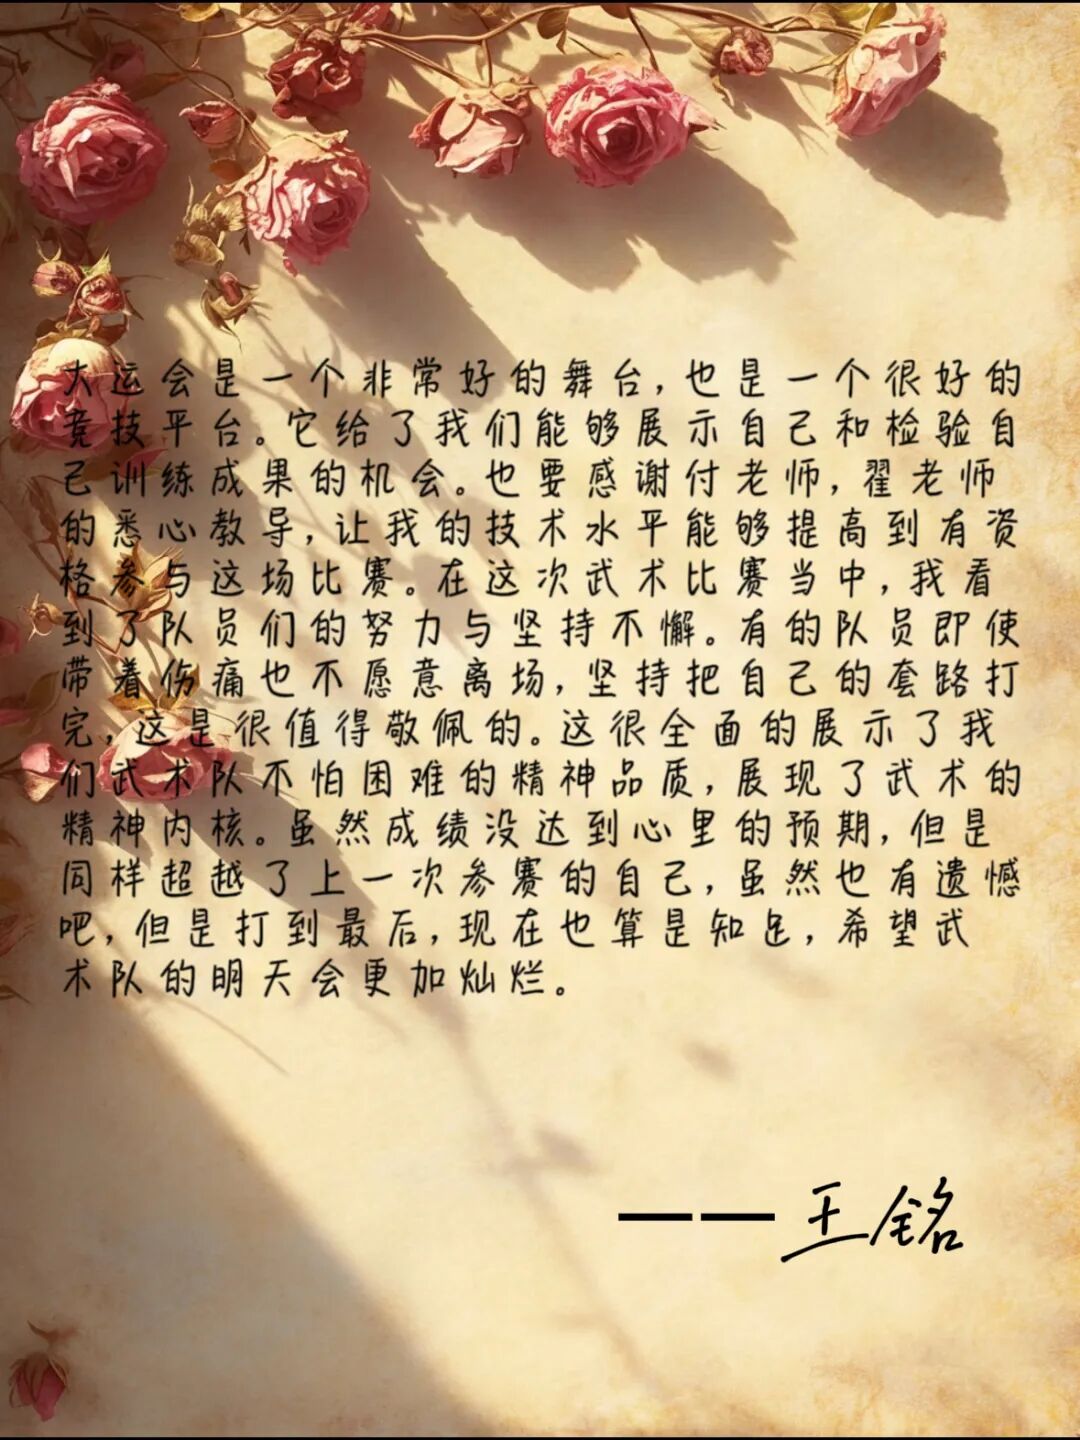 大运会是一个非常好的舞台,也是一个很好的
竞技平台。它给了我们能够展示自己和检验自
己训练成果的机会。也要感谢付老师,翟老师
的悉心教导,让我的技术水平能够提高到有资
格参与这场比赛。在这次武术比赛当中,我看
到了队员们的努力与坚持不懈。有的队员即使
带着伤痛也不愿意离场,坚持把自己的套路打
完,这是很值得敬佩的。这很全面的展示了我
们武术队不怕困难的精神品质,展现了武术的
精神内核。虽然成绩没达到心里的预期,但是
同样超越了上一次参赛的自己,虽然也有遗憾
吧,但是打到最后,现在也算是知足,希望武
术队的明天会更加灿烂。
——王铭